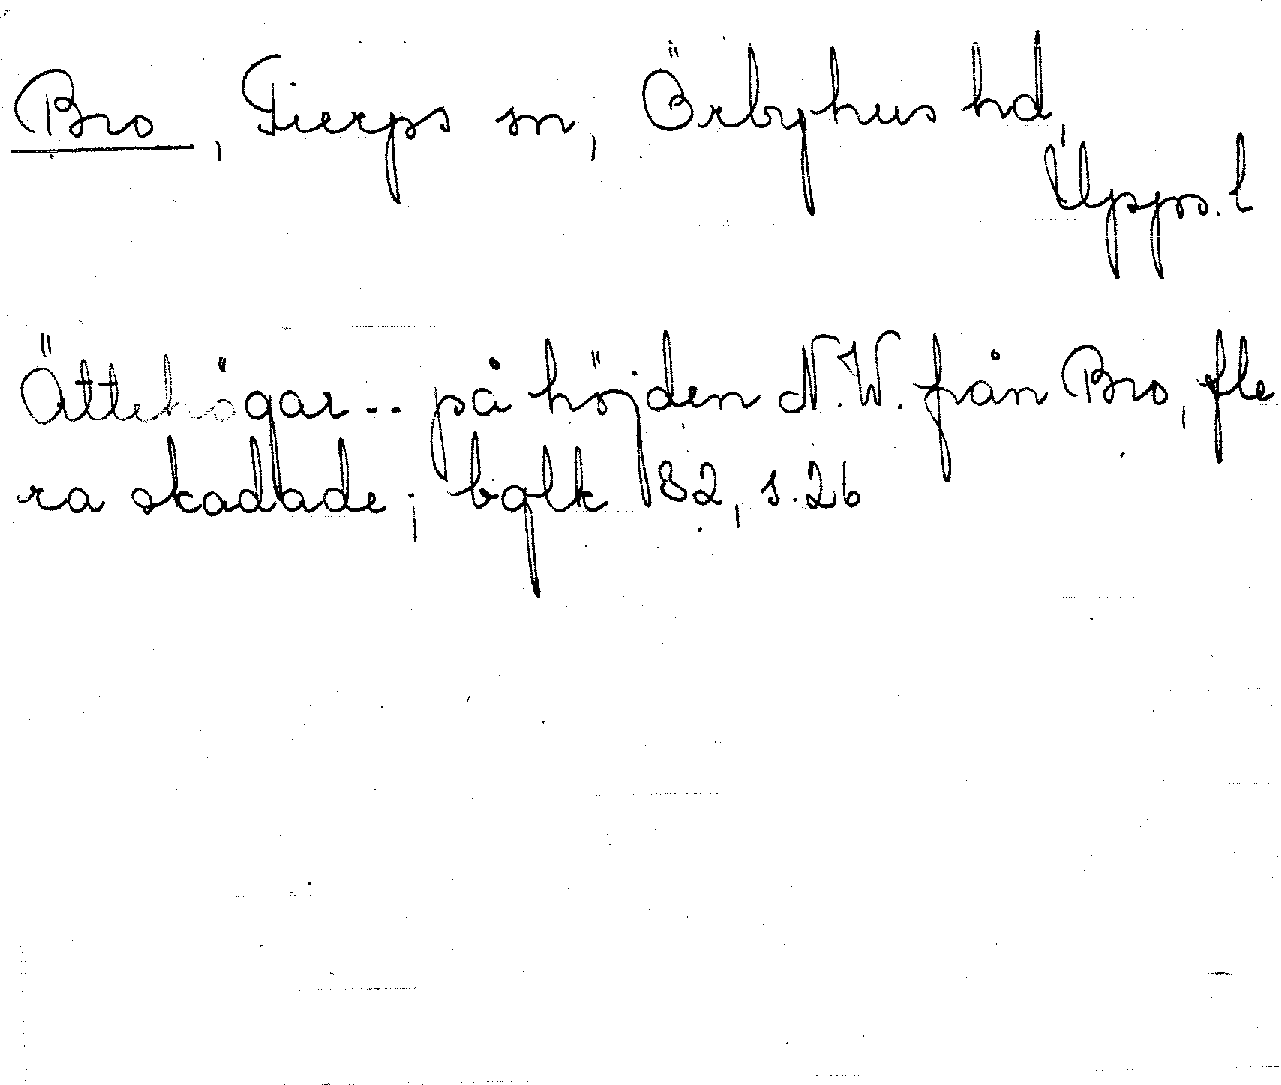 Bro, Tierps sn, Örbyhus hd,
Upps. l
Ättehögar.. på höjden N.W. från Bro, fle
ra skadade; bglk 82, s. 26